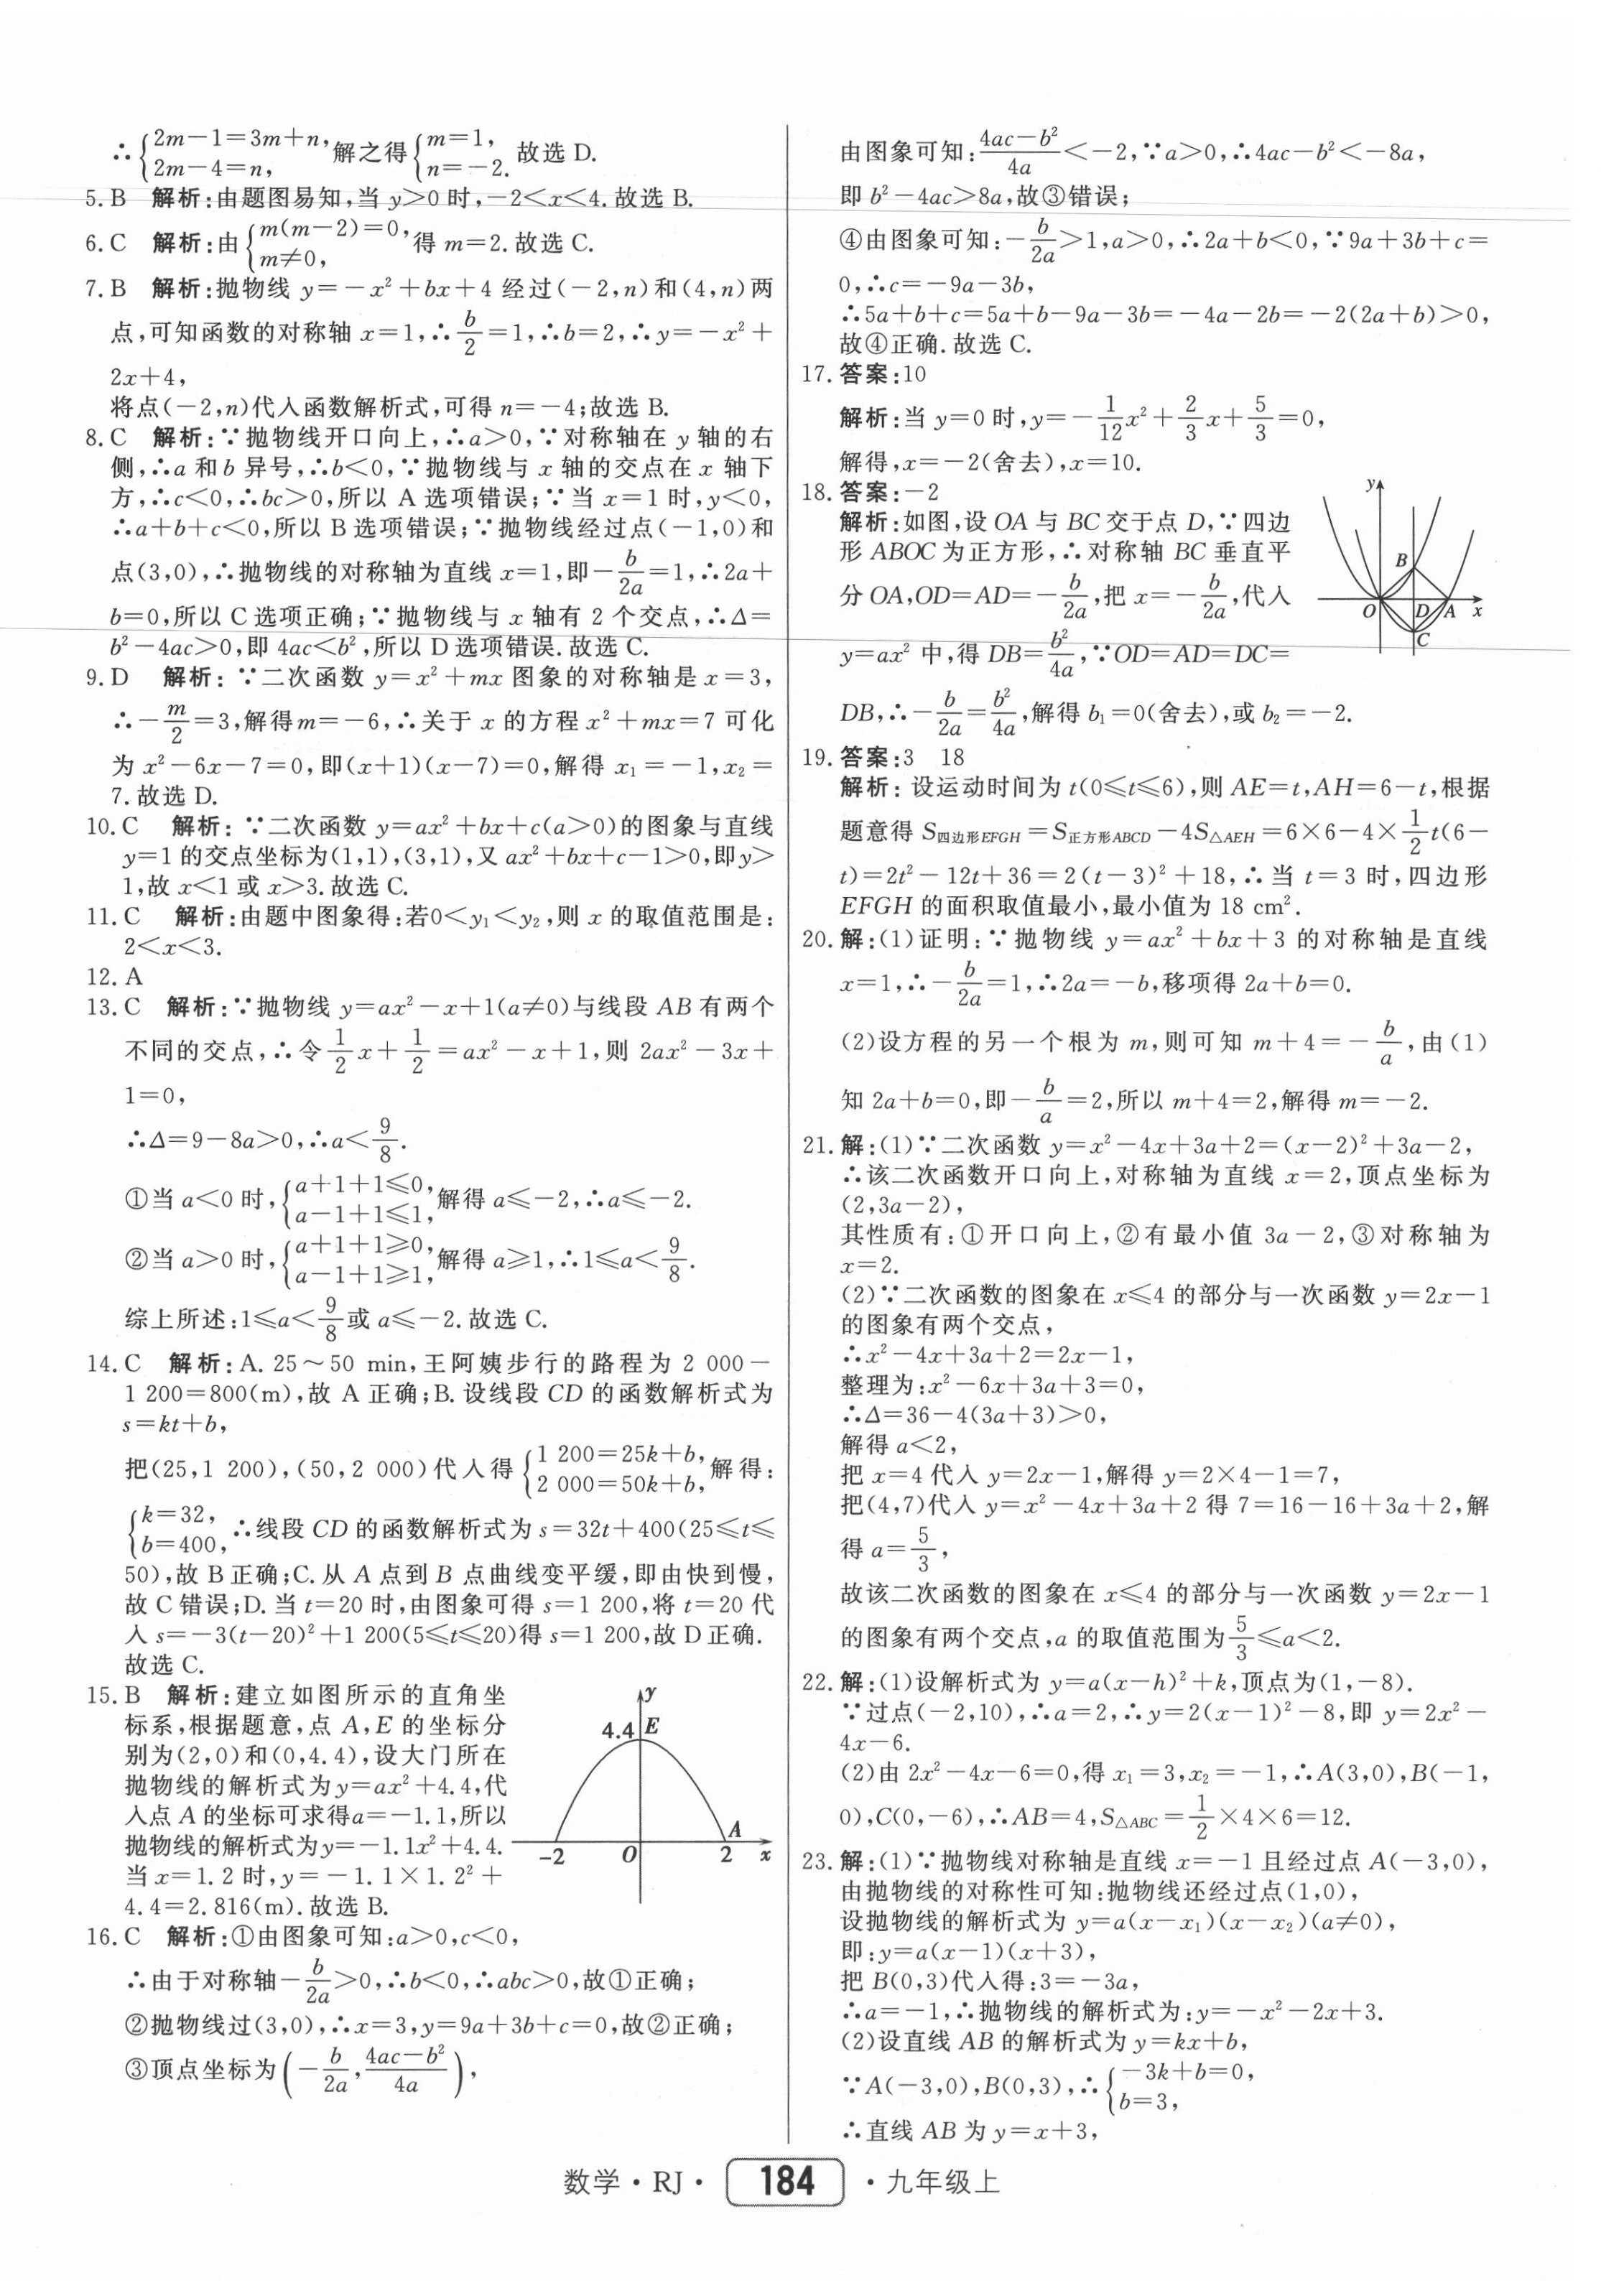 ∴{2m-1=3m+n, 2m-4=n, 解之得{m=1, n=-2. 故选 D.
5. B 解析:由题图易知,当 y>0 时,-2<x<4. 故选 B.
6. C 解析:由{m(m-2)=0, m≠0, 得 m=2. 故选 C.
7. B 解析:抛物线 y=-x²+bx+4 经过(-2,n)和(4,n)两
点,可知函数的对称轴 x=1,∴b/2=1,∴b=2,∴y=-x²+
2x+4,
将点(-2,n)代入函数解析式,可得 n=-4;故选 B.
8. C 解析:∵抛物线开口向上,∴a>0,∵对称轴在 y 轴的右
侧,∴a 和 b 异号,∴b<0,∵抛物线与 x 轴的交点在 x 轴下
方,∴c<0,∴bc>0,所以 A 选项错误;∵当 x=1 时,y<0,
∴a+b+c<0,所以 B 选项错误;∵抛物线经过点(-1,0)和
点(3,0),∴抛物线的对称轴为直线 x=1,即-b/2a=1,∴2a+
b=0,所以 C 选项正确;∵抛物线与 x 轴有 2 个交点,∴Δ=
b²-4ac>0,即 4ac<b²,所以 D 选项错误. 故选 C.
9. D 解析:∵二次函数 y=x²+mx 图象的对称轴是 x=3,
∴-m/2=3,解得m=-6,∴关于 x 的方程 x²+mx=7 可化
为 x²-6x-7=0,即(x+1)(x-7)=0,解得 x₁=-1,x₂=
7. 故选 D.
10. C 解析:∵二次函数 y=ax²+bx+c(a>0)的图象与直线
y=1 的交点坐标为(1,1),(3,1),又 ax²+bx+c-1>0,即y>
1,故 x<1 或 x>3. 故选 C.
11. C 解析:由题中图象得:若0<y₁<y₂,则 x 的取值范围是:
2<x<3.
12. A
13. C 解析:∵抛物线 y=ax²-x+1(a≠0)与线段 AB 有两个
不同的交点,∴令1/2x+1/2=ax²-x+1,则 2ax²-3x+
1=0,
∴Δ=9-8a>0,∴a<9/8.
①当 a<0 时,{a+1+1≤0, a-1+1≤1, 解得 a≤-2,∴a≤-2.
②当 a>0 时,{a+1+1≥0, a-1+1≥1, 解得 a≥1,∴1≤a<9/8.
综上所述:1≤a<9/8或 a≤-2. 故选 C.
14. C 解析:A. 25~50 min,王阿姨步行的路程为 2 000-
1 200=800(m),故 A 正确;B. 设线段 CD 的函数解析式为
s=kt+b,
把(25,1 200),(50,2 000)代入得{1 200=25k+b, 2 000=50k+b, 解得:
{k=32, b=400, ∴线段 CD 的函数解析式为 s=32t+400(25≤t≤
50),故 B 正确;C. 从 A 点到 B 点曲线变平缓,即由快到慢,
故 C 错误;D. 当 t=20 时,由图象可得 s=1 200,将 t=20 代
入 s=-3(t-20)²+1 200(5≤t≤20)得 s=1 200,故 D 正确.
故选 C.
15. B 解析:建立如图所示的直角坐
标系,根据题意,点 A,E 的坐标分
别为(2,0)和(0,4.4),设大门所在
抛物线的解析式为y=ax²+4.4,代
入点 A 的坐标可求得a=-1.1,所以
抛物线的解析式为y=-1.1x²+4.4.
当 x=1.2 时,y=-1.1×1.2²+
4.4=2.816(m). 故选 B.
y
4.4 E
A
-2 O 2 x
16. C 解析:①由图象可知:a>0,c<0,
∴由于对称轴-b/2a>0,∴b<0,∴abc>0,故①正确;
②抛物线过(3,0),∴x=3,y=9a+3b+c=0,故②正确;
③顶点坐标为(-b/2a,(4ac-b²)/4a),
由图象可知:(4ac-b²)/4a<-2,∵a>0,∴4ac-b²<-8a,
即 b²-4ac>8a,故③错误;
④由图象可知:-b/2a>1,a>0,∴2a+b<0,∵9a+3b+c=
0,∴c=-9a-3b,
∴5a+b+c=5a+b-9a-3b=-4a-2b=-2(2a+b)>0,
故④正确. 故选 C.
17. 答案:10
解析:当 y=0 时,y=-1/12x²+2/3x+5/3=0,
解得,x=-2(舍去),x=10.
18. 答案:-2
解析:如图,设 OA 与 BC 交于点 D,∵四边
形 ABOC 为正方形,∴对称轴 BC 垂直平
分 OA,OD=AD=-b/2a,把 x=-b/2a,代入
y=ax² 中,得 DB=b²/4a,∵OD=AD=DC=
DB,∴-b/2a=b²/4a,解得 b₁=0(舍去),或 b₂=-2.
y
B
O D A x
C
19. 答案:3 18
解析:设运动时间为 t(0≤t≤6),则 AE=t,AH=6-t,根据
题意得 S四边形EFGH=S正方形ABCD-4S△AEH=6×6-4×1/2t(6-
t)=2t²-12t+36=2(t-3)²+18,∴当 t=3 时,四边形
EFGH 的面积取值最小,最小值为 18 cm².
20. 解:(1)证明:∵抛物线 y=ax²+bx+3 的对称轴是直线
x=1,∴-b/2a=1,∴2a=-b,移项得 2a+b=0.
(2)设方程的另一个根为 m,则可知 m+4=-b/a,由(1)
知 2a+b=0,即-b/a=2,所以 m+4=2,解得 m=-2.
21. 解:(1)∵二次函数 y=x²-4x+3a+2=(x-2)²+3a-2,
∴该二次函数开口向上,对称轴为直线 x=2,顶点坐标为
(2,3a-2),
其性质有:①开口向上,②有最小值 3a-2,③对称轴为
x=2.
(2)∵二次函数的图象在 x≤4 的部分与一次函数 y=2x-1
的图象有两个交点,
∴x²-4x+3a+2=2x-1,
整理为:x²-6x+3a+3=0,
∴Δ=36-4(3a+3)>0,
解得 a<2,
把 x=4 代入 y=2x-1,解得 y=2×4-1=7,
把(4,7)代入 y=x²-4x+3a+2 得 7=16-16+3a+2,解
得 a=5/3,
故该二次函数的图象在 x≤4 的部分与一次函数 y=2x-1
的图象有两个交点,a 的取值范围为5/3≤a<2.
22. 解:(1)设解析式为 y=a(x-h)²+k,顶点为(1,-8).
∵过点(-2,10),∴a=2,∴y=2(x-1)²-8,即 y=2x²-
4x-6.
(2)由 2x²-4x-6=0,得 x₁=3,x₂=-1,∴A(3,0),B(-1,
0),C(0,-6),∴AB=4,S△ABC=1/2×4×6=12.
23. 解:(1)∵抛物线对称轴是直线 x=-1 且经过点 A(-3,0),
由抛物线的对称性可知:抛物线还经过点(1,0),
设抛物线的解析式为 y=a(x-x₁)(x-x₂)(a≠0),
即:y=a(x-1)(x+3),
把 B(0,3)代入得:3=-3a,
∴a=-1,∴抛物线的解析式为:y=-x²-2x+3.
(2)设直线 AB 的解析式为 y=kx+b,
∵A(-3,0),B(0,3),∴{-3k+b=0, b=3,
∴直线 AB 为 y=x+3,
数学·RJ· 184 ·九年级上